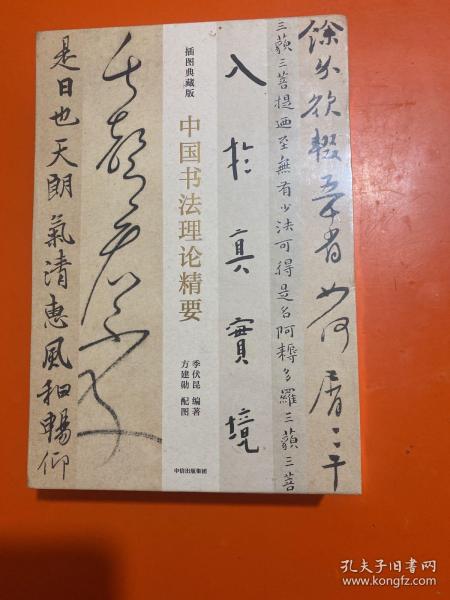 三藐三菩提迺至無有少法可得是名阿耨多羅三藐三菩
入扵真實境
插图典藏版
中国书法理论精要
季伏昆 编著
方建勋 配图
中信出版集团
是日也天朗氣清惠風和暢仰
孔夫子旧书网
www.kongfz.com